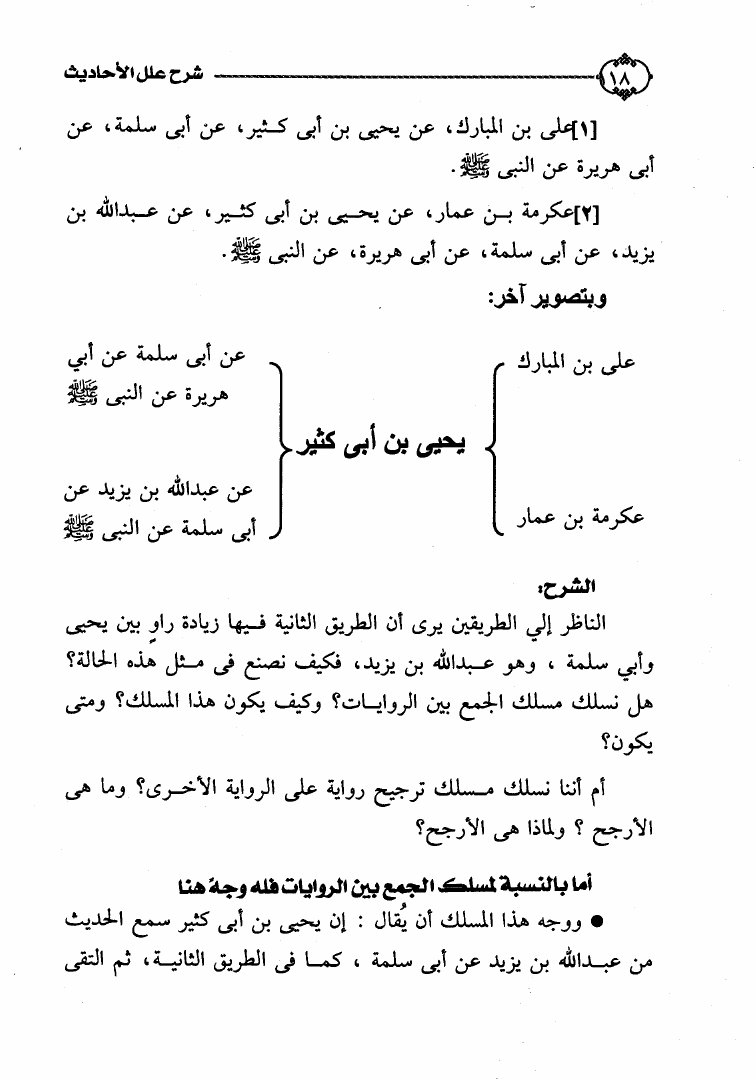 شرح علل الأحاديث ١٨
[١]على بن المبارك، عن يحيى بن أبى كثير، عن أبى سلمة، عن
أبى هريرة عن النبى ﷺ.
[٢]عكرمة بن عمار، عن يحيى بن أبى كثير، عن عبدالله بن
يزيد، عن أبى سلمة، عن أبى هريرة، عن النبى ﷺ.
وبتصوير آخر:
على بن المبارك
عكرمة بن عمار
يحيى بن أبى كثير
عن أبى سلمة عن أبي
هريرة عن النبى ﷺ
عن عبدالله بن يزيد عن
أبى سلمة عن النبى ﷺ
الشرح:
الناظر إلي الطريقين يرى أن الطريق الثانية فيها زيادة راوٍ بين يحيى
وأبي سلمة ، وهو عبدالله بن يزيد، فكيف نصنع فى مثل هذه الحالة؟
هل نسلك مسلك الجمع بين الروايات؟ وكيف يكون هذا المسلك؟ ومتى
يكون؟
أم أننا نسلك مسلك ترجيح رواية على الرواية الأخرى؟ وما هى
الأرجح ؟ ولماذا هى الأرجح؟
أما بالنسبة لمسلك الجمع بين الروايات فله وجهٌ هنا
● ووجه هذا المسلك أن يُقال : إن يحيى بن أبى كثير سمع الحديث
من عبدالله بن يزيد عن أبى سلمة ، كما فى الطريق الثانية، ثم التقى